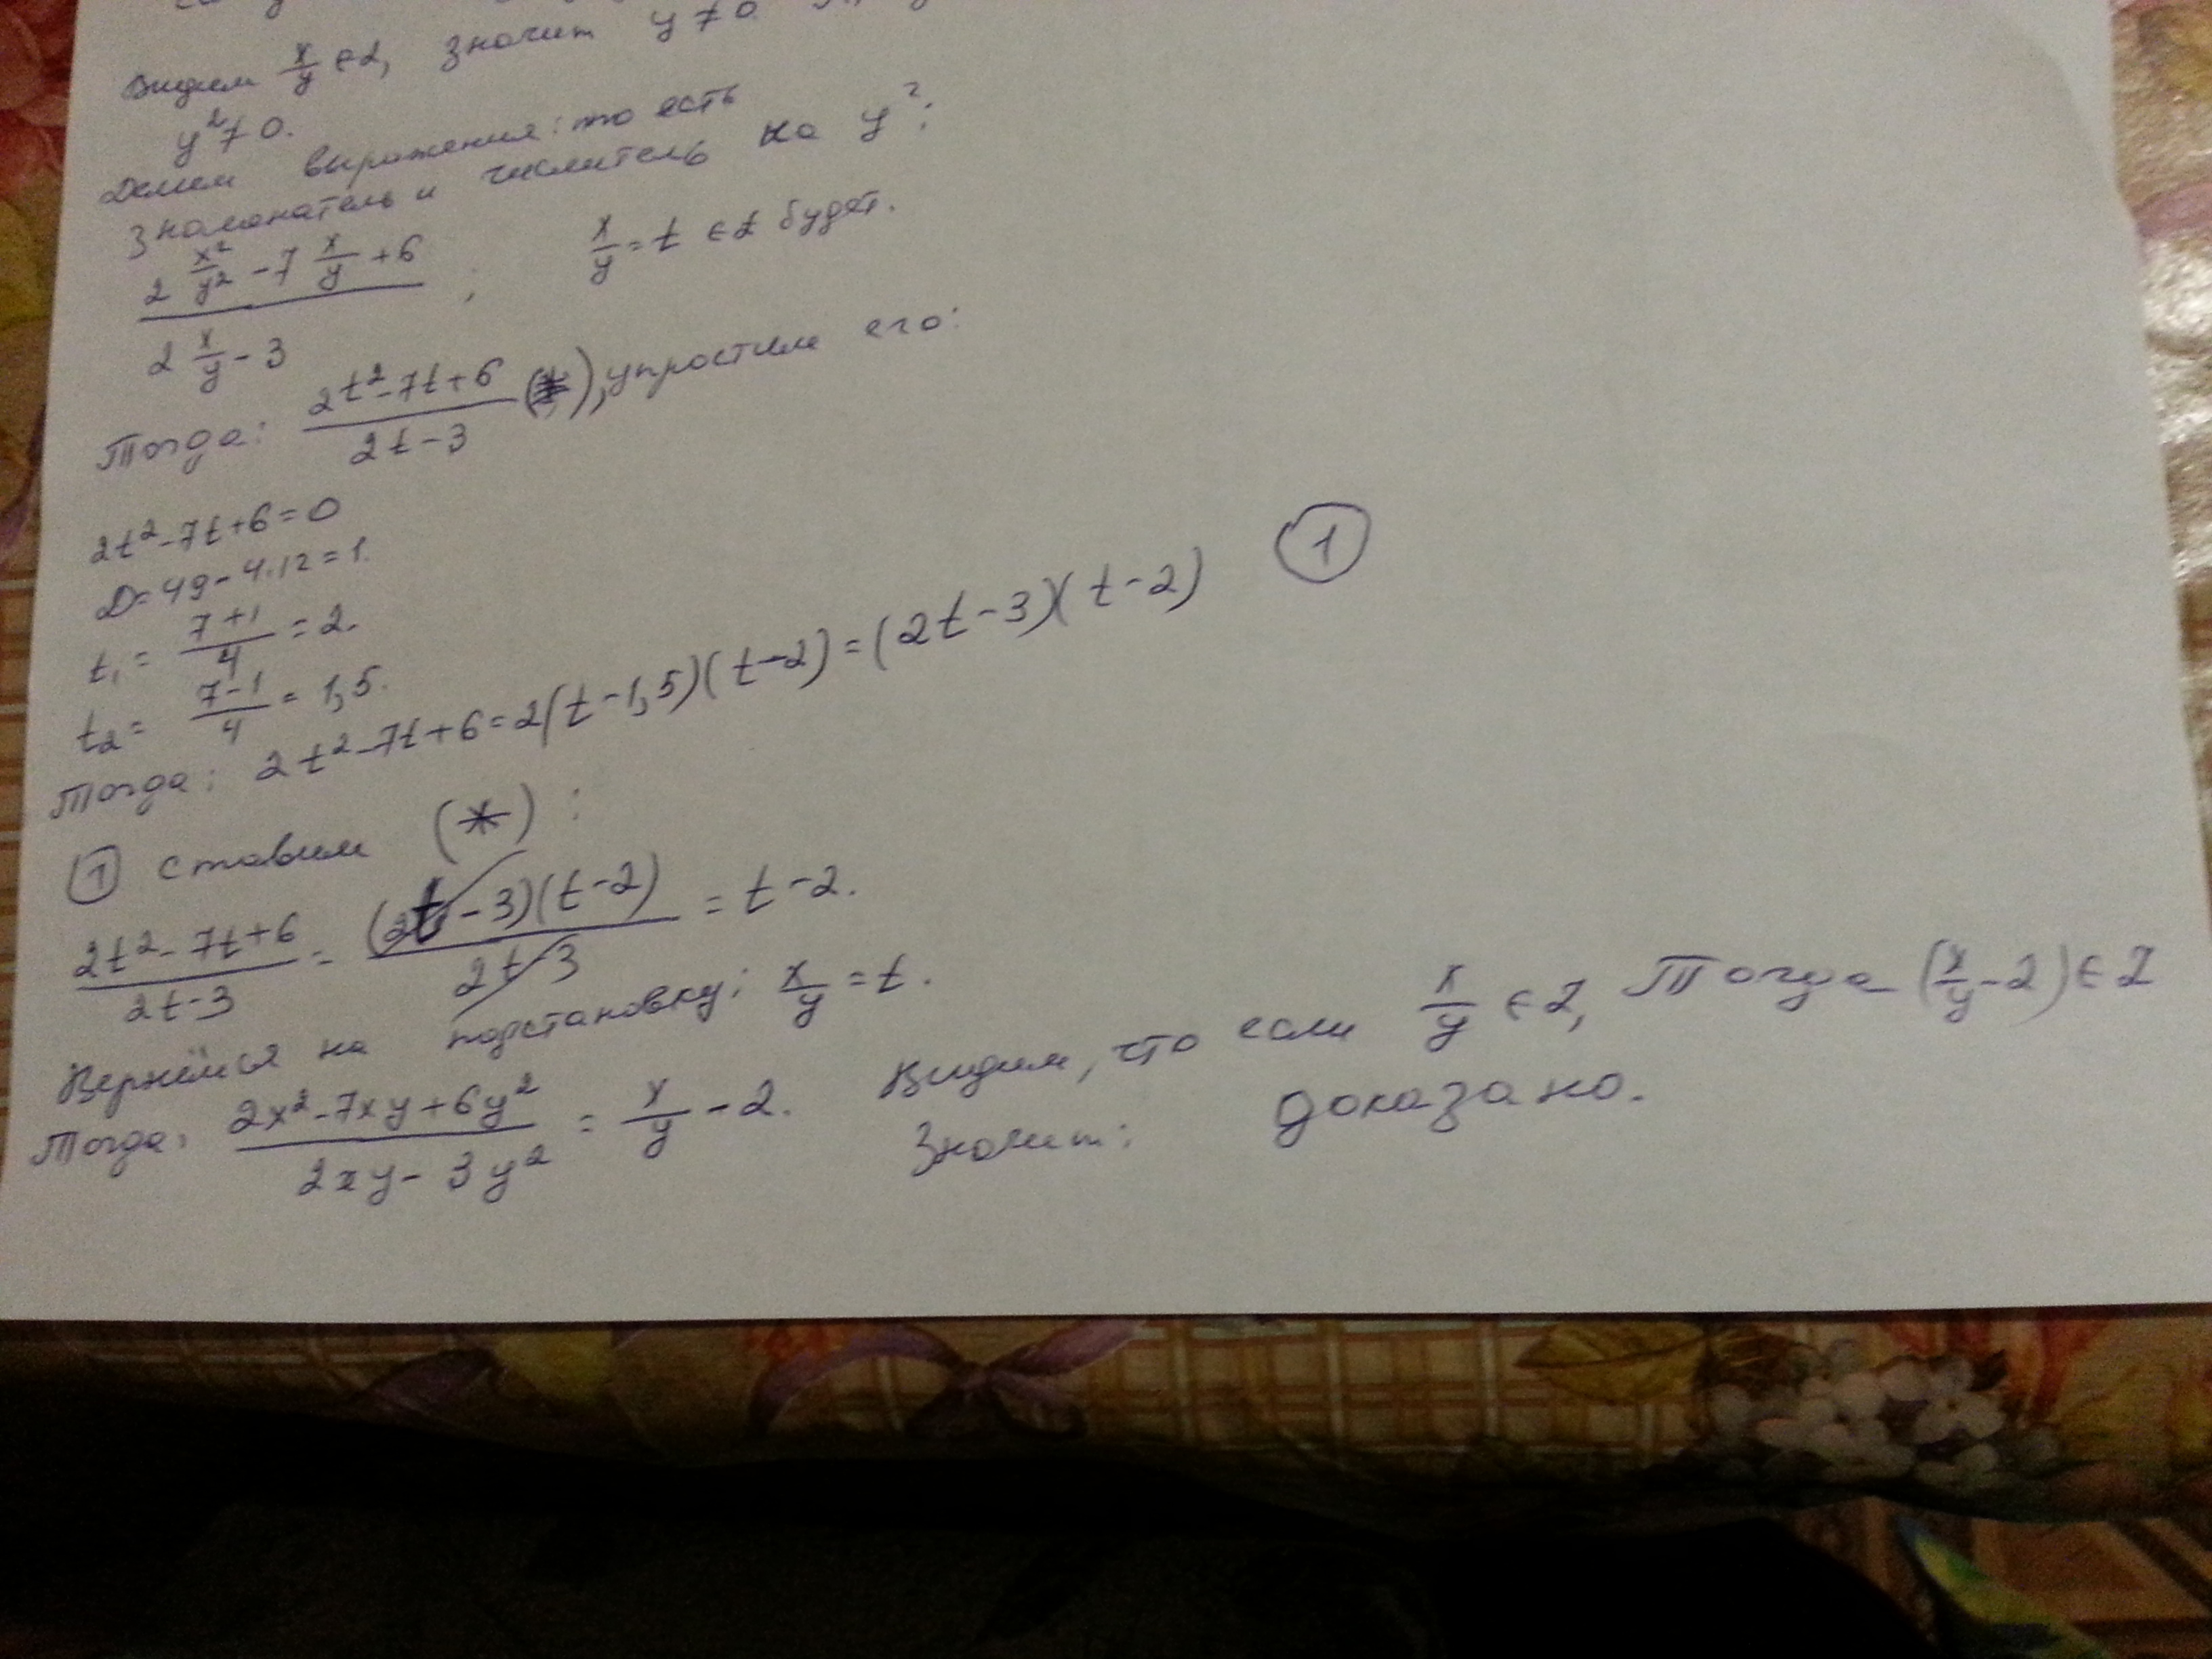 Видим x/y ∈ Z, значит y ≠ 0
y² ≠ 0.
Делим выражения: то есть
знаменатель и числитель на y²:
(2 x²/y² - 7 x/y + 6)/(2 x/y - 3) ; x/y = t ∈ Z будет.
Тогда: (2t² - 7t + 6)/(2t - 3) (*), упростим его:
2t² - 7t + 6 = 0
D = 49 - 4·12 = 1.
t₁ = (7+1)/4 = 2.
t₂ = (7-1)/4 = 1,5.
Тогда: 2t² - 7t + 6 = 2(t - 1,5)(t - 2) = (2t - 3)(t - 2) ①
① ставим (*):
(2t² - 7t + 6)/(2t - 3) = (2t - 3)(t - 2)/(2t - 3) = t - 2.
Вернёмся на подстановку; x/y = t.
Тогда: (2x² - 7xy + 6y²)/(2xy - 3y²) = x/y - 2. Видим, что если x/y ∈ Z, Тогда (x/y - 2) ∈ Z
Значит: доказано.